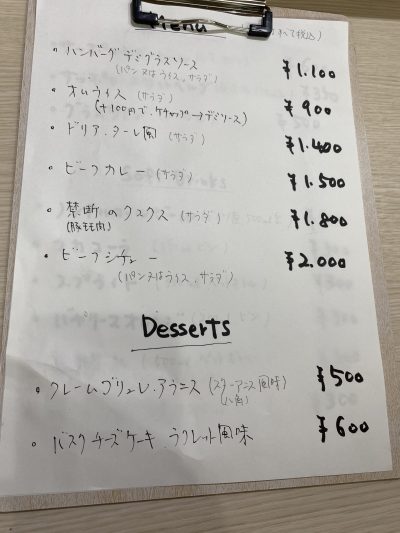 Menu (すべて税込)
・ハンバーグデミグラスソース ¥1.100
(パン又はライス。サラダ)
・オムライス (サラダ) ¥900
(+100円で、ケチャップ→デミソース)
・ドリア.タール風 (サラダ) ¥1.400
・ビーフカレー (サラダ) ¥1.500
・禁断のクスクス (サラダ) ¥1.800
(豚モモ肉)
・ビーフシチュー ¥2.000
(パン又はライス。サラダ)
Desserts
・クレームブリュレ.アラニス (スターアニス風味) ¥500
(八角)
・バスクチーズケーキ.ラクレット風味 ¥600